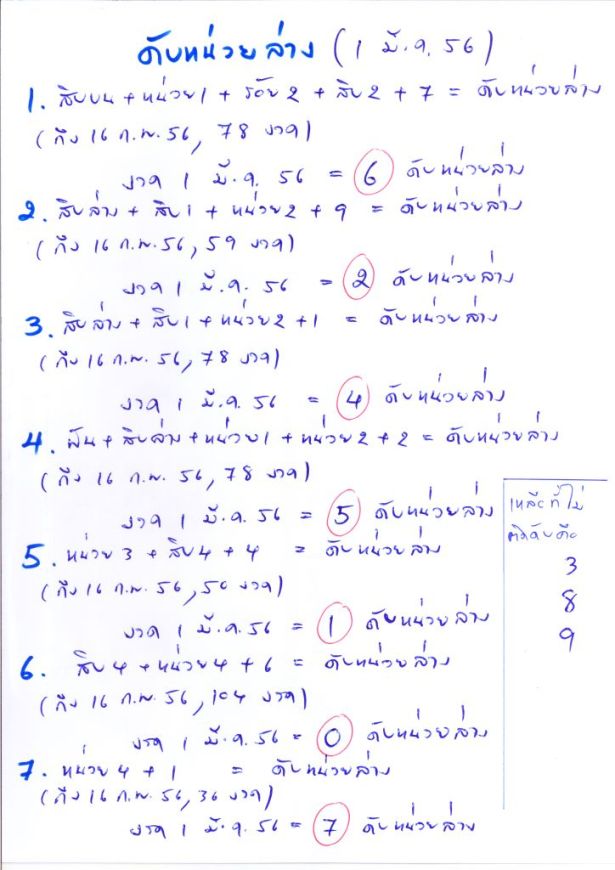 ดับหน่วยล่าง (1 มี.ค. 56)
1. สิบบน + หน่วย1 + ร้อย2 + สิบ2 + 7 = ดับหน่วยล่าง
(ถึง 16 ก.พ. 56, 78 งวด)
งวด 1 มี.ค. 56 = 6 ดับหน่วยล่าง
2. สิบล่าง + สิบ1 + หน่วย2 + 9 = ดับหน่วยล่าง
(ถึง 16 ก.พ. 56, 59 งวด)
งวด 1 มี.ค. 56 = 2 ดับหน่วยล่าง
3. สิบล่าง + สิบ1 + หน่วย2 + 1 = ดับหน่วยล่าง
(ถึง 16 ก.พ. 56, 78 งวด)
งวด 1 มี.ค. 56 = 4 ดับหน่วยล่าง
4. พัน + สิบล่าง + หน่วย1 + หน่วย2 + 2 = ดับหน่วยล่าง
(ถึง 16 ก.พ. 56, 78 งวด)
งวด 1 มี.ค. 56 = 5 ดับหน่วยล่าง
5. หน่วย3 + สิบ4 + 4 = ดับหน่วยล่าง
(ถึง 16 ก.พ. 56, 50 งวด)
งวด 1 มี.ค. 56 = 1 ดับหน่วยล่าง
6. สิบ4 + หน่วย4 + 6 = ดับหน่วยล่าง
(ถึง 16 ก.พ. 56, 104 งวด)
งวด 1 มี.ค. 56 = 0 ดับหน่วยล่าง
7. หน่วย4 + 1 = ดับหน่วยล่าง
(ถึง 16 ก.พ. 56, 36 งวด)
งวด 1 มี.ค. 56 = 7 ดับหน่วยล่าง
เหลือที่ไม่
ติดดับคือ
3
8
9